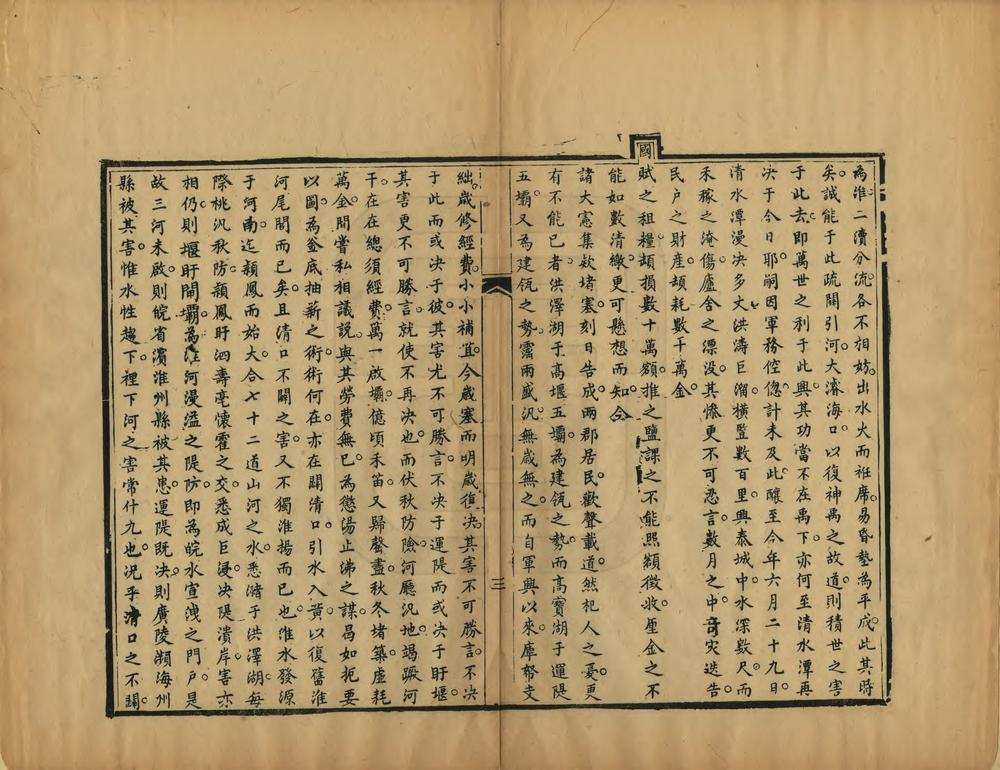 為淮二瀆分流各不相妨出水火而袵席易昏墊為平成此其時
矣誠能于此疏開引河大濬海口以復神禹之故道則積世之害
于此去即萬世之利于此興其功當不在禹下亦何至清水潭再
決于今日耶嗣因軍務倥偬計未及此釀至今年六月二十九日
清水潭漫決多丈洪濤巨溜橫監數百里興泰城中水深數尺而
禾稼之淹傷廬舍之漂没其慘更不可忍言數月之中音灾迭告
民戶之財產頗耗數千萬金
國
賦之租糧頡損數十萬額推之鹽課之不能照纇徵收厘金之不
能如數清繳更可懸想而知今
諸大憲集欵堵塞刻日告成兩郡居民歡聲載道然杞人之憂更
有不能已者洪澤湖于高堰五壩為建瓴之勢而高寶湖于運隄
五壩又為建瓴之勢霪雨盛汛無歲無之而自軍興以來庫帑支
三
絀歲修經費小小補苴今歲塞而明歲復決其害不可勝言不決
于此而或决于彼其害尤不可勝言不决于運隄而或决于盱堰
其害更不可勝言就使不再決也而伏秋防險河廳汛地竭蹶河
干在在總須經費萬一啟壩億頃禾苗又歸罄盡秋冬堵築虛耗
萬金間嘗私相議説與其勞費無已為懲湯止沸之謀曷如扼要
以圖為釜底抽薪之術術何在亦在闢清口引水入黄以復舊淮
河尾閭而已矣且清口不闢之害又不獨淮揚而已也淮水發源
于河南迄潁鳳而始大合七十二道山河之水悉潴于洪澤湖每
際桃汛秋防潁鳳盱泗壽亳懷霍之交悉成巨浸决隄潰岸害亦
相仍則堰盱閘壩為淮河漫溢之隄防即為皖水宣洩之門戶是
故三河未啟則皖省濱淮州縣被其患運隄既决則廣陵瀕海州
縣被其害惟水性趨下裡下河之害常什九也况乎清口之不闢